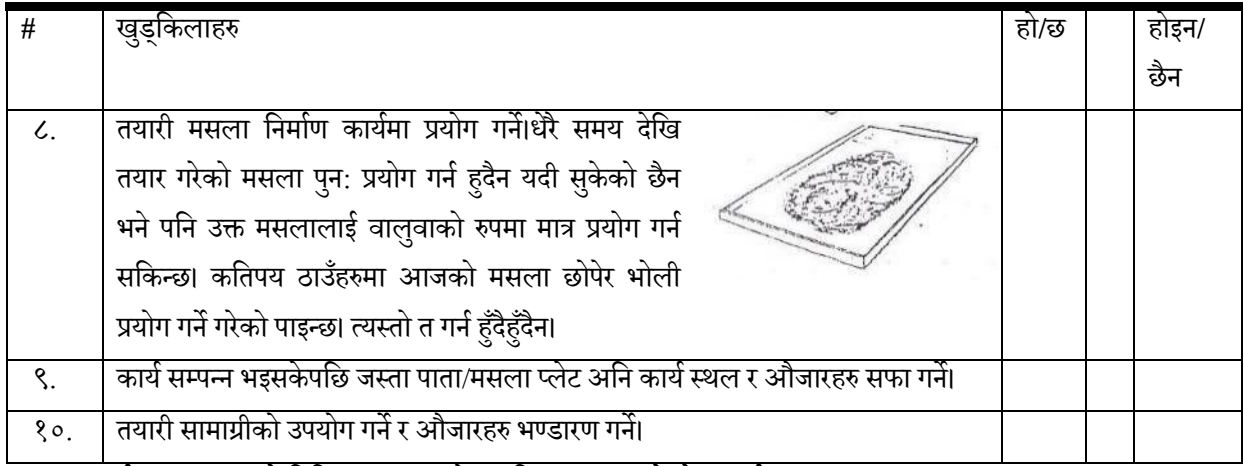 # खुड्किलाहरु हो/छ होइन/
छैन
८. तयारी मसला निर्माण कार्यमा प्रयोग गर्ने।धेरै समय देखि
तयार गरेको मसला पुन: प्रयोग गर्न हुदैन यदी सुकेको छैन
भने पनि उक्त मसलालाई वालुवाको रुपमा मात्र प्रयोग गर्न
सकिन्छ। कतिपय ठाउँहरुमा आजको मसला छोपेर भोली
प्रयोग गर्ने गरेको पाइन्छ। त्यस्तो त गर्न हुँदैहुँदैन।
९. कार्य सम्पन्न भइसकेपछि जस्ता पाता/मसला प्लेट अनि कार्य स्थल र औजारहरु सफा गर्ने।
१०. तयारी सामाग्रीको उपयोग गर्ने र औजारहरु भण्डारण गर्ने।